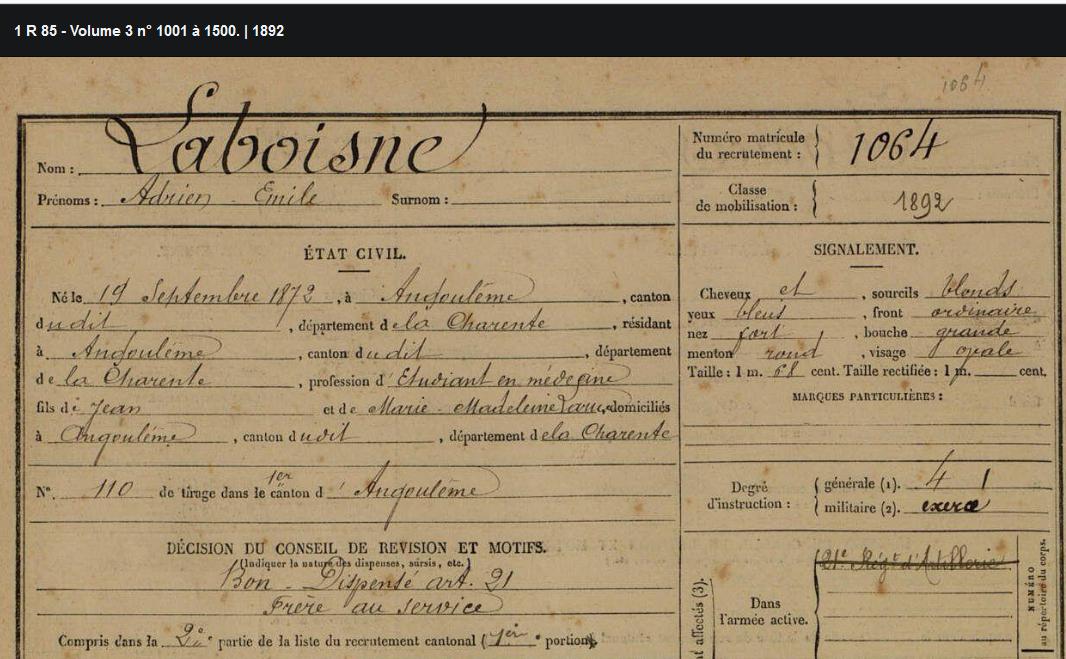 1 R 85 - Volume 3 n° 1001 à 1500. | 1892
1064
Nom : Laboisne
Prénoms : Adrien Emile Surnom :
Numéro matricule du recrutement : 1064
Classe de mobilisation : 1892
ÉTAT CIVIL.
Né le 19 Septembre 1872, à Angoulême, canton
dudit, département de la Charente, résidant
à Angoulême, canton dudit, département
de la Charente, profession d'Etudiant en médecine
fils de Jean et de Marie-Madeleine domiciliés
à Angoulême, canton dudit, département de la Charente
N°. 110 de tirage dans le 1er canton d'Angoulême
DÉCISION DU CONSEIL DE REVISION ET MOTIFS.
(Indiquer la nature des dispenses, sursis, etc.)
Bon - Dispensé art. 21
Frère au service
Compris dans la 2e partie de la liste du recrutement cantonal (1ère portion
SIGNALEMENT.
Cheveux et, sourcils blonds
yeux bleus, front ordinaire
nez fort, bouche grande
menton rond, visage ovale
Taille : 1 m. 68 cent. Taille rectifiée : 1 m. cent.
MARQUES PARTICULIÈRES :
Degré d'instruction : générale (1). 4 1
militaire (2). exercé
21e Régt d'Artillerie
Dans
l'armée active.
affectés (3).
NUMÉRO
au répertoire du corps.